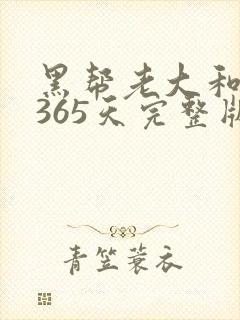 黑帮老大和
365天完整版
青笠蓑衣